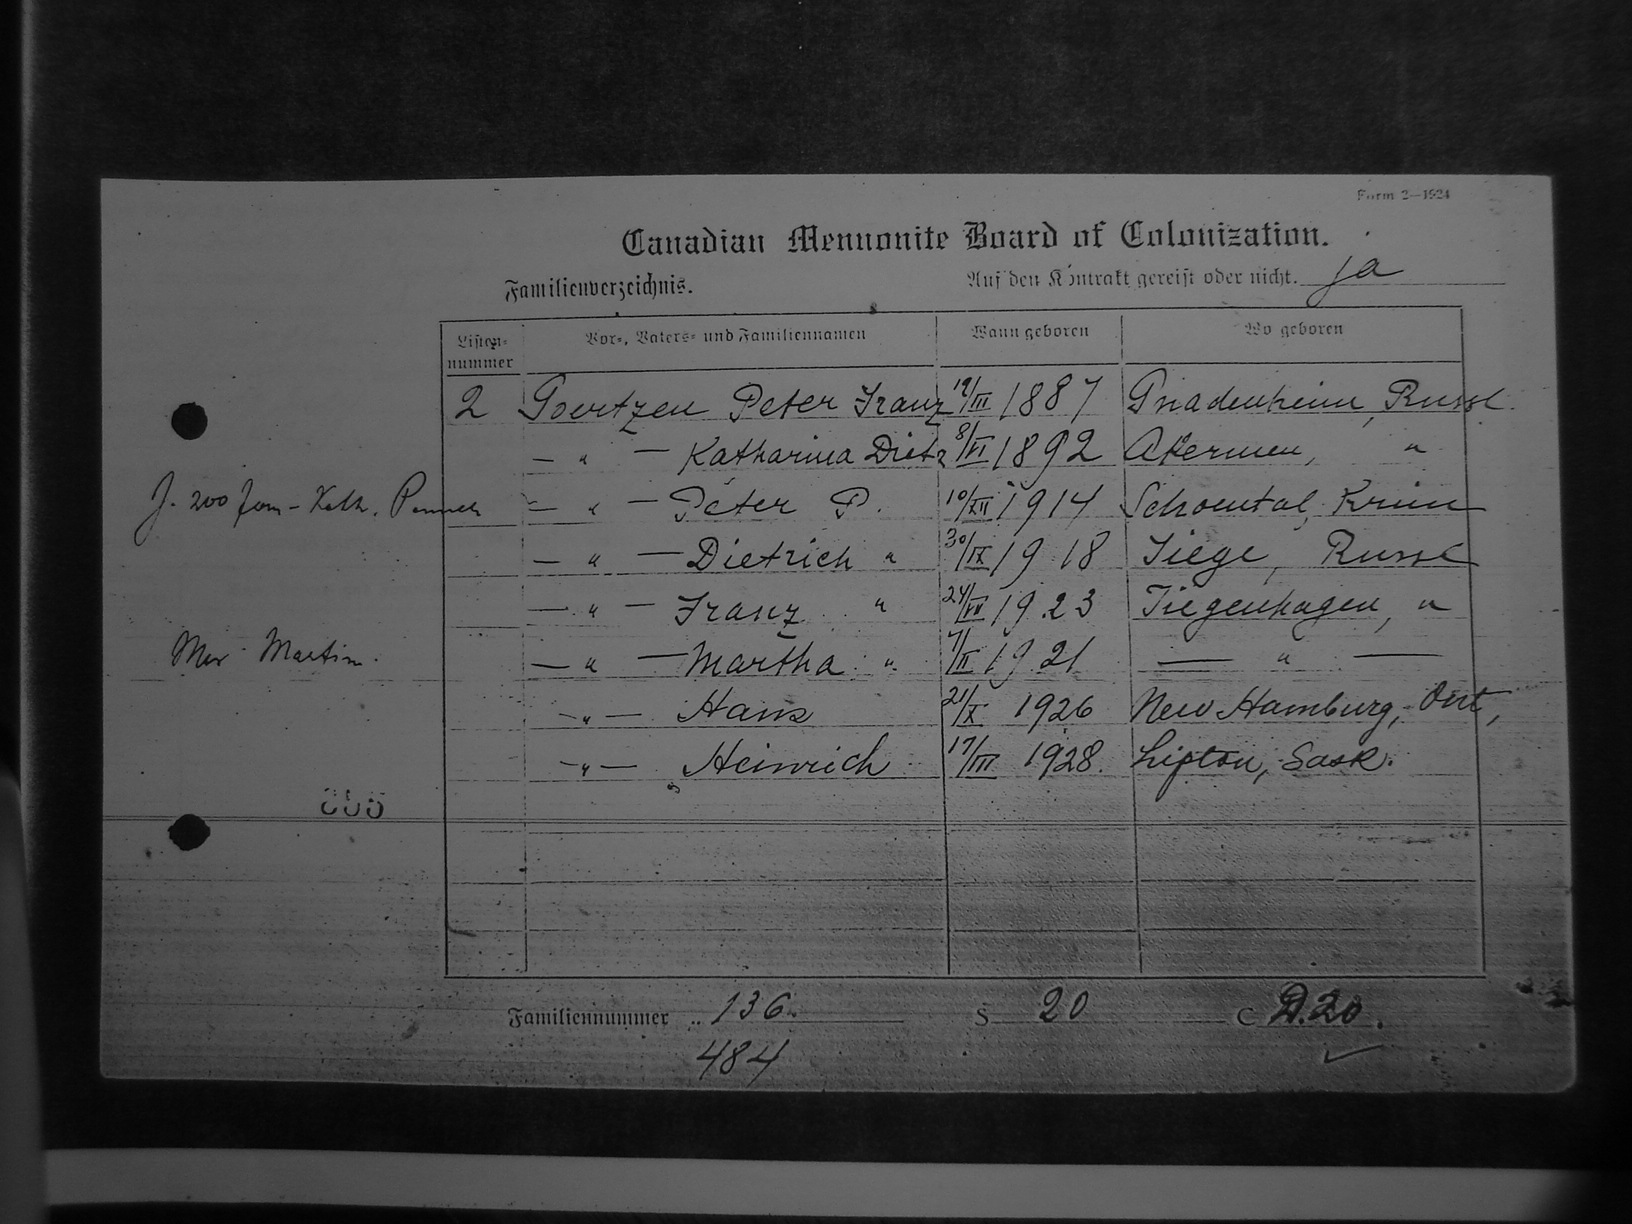 Form 2—1924
Canadian Mennonite Board of Colonization.
Familienverzeichnis. Auf den Kontrakt gereist oder nicht. ja
Listen-nummer Vor-, Vaters- und Familiennamen Wann geboren Wo geboren
2 Goertzen Peter Franz 19/III 1887 Gnadenheim, Russl.
— " — Katharina Diet 8/VI 1892 Akermen, "
— " — Peter P. 10/XII 1914 Schoental, Krim
— " — Dietrich " 30/IX 1918 Tiege, Russl
— " — Franz " 24/VII 1923 Tiegenhagen, "
— " — Martha " 7/II 1921 — " —
— " — Hans 21/X 1926 New Hamburg, Ont,
— " — Heinrich 17/III 1928. Lipton, Sask.
J. 200 fam - Kath.
Martin.
Familiennummer 136. S 20 C D.20.
484